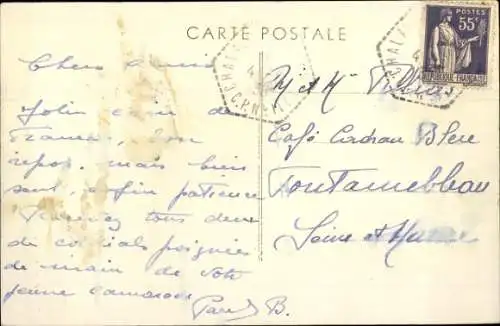 CARTE POSTALE
POSTES
55c
REPUBLIQUE FRANÇAISE
Chers amis
Jolin coin de
France, bon
repos, mais bien
sant, enfin patience
Recevez tous deux
de cordials poignées
de main de votre
jeune camarade
B.
M et Mme
Café Cadran Bleu
Fontainebleau
Seine et Marne